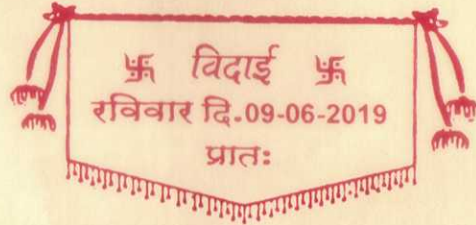 卐 विदाई 卐
रविवार दि.09-06-2019
प्रातः